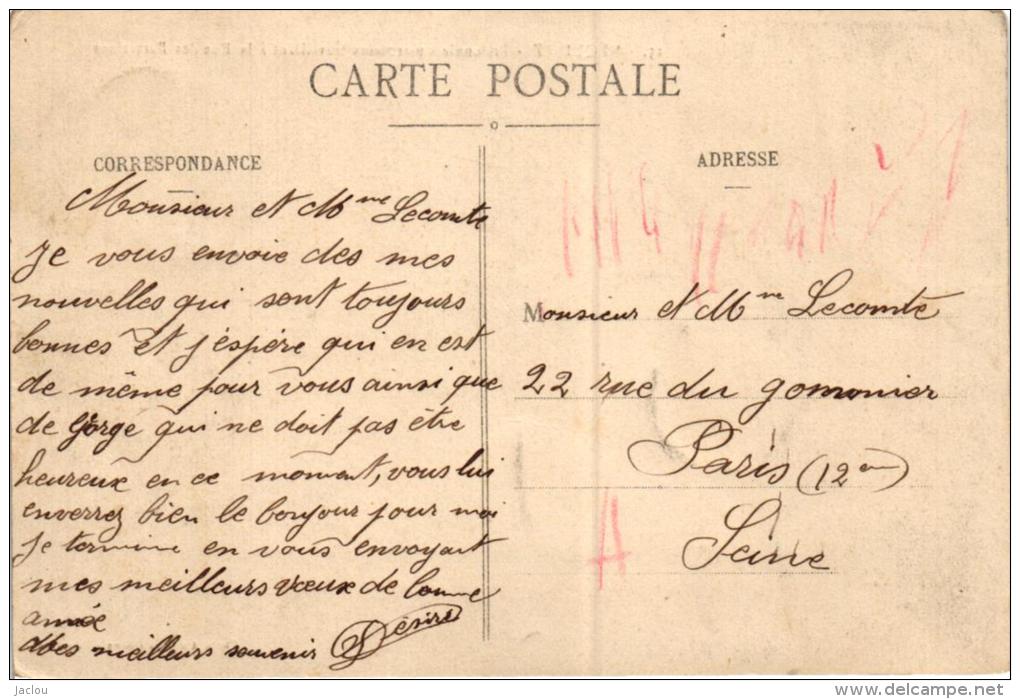 CARTE POSTALE
CORRESPONDANCE
Monsieur et Mme Lecomte
Je vous envoie des mes
nouvelles qui sont toujours
bonnes et j'éspére qui en est
de même pour vous ainsi que
de Gorge qui ne doit pas être
heureux en ce moment, vous lui
enverrez bien le bonjour pour moi
je termine en vous envoyant
mes meilleurs vœux de bonne
année
meilleurs souvenir Désiré
ADRESSE
Monsieur et Mme Lecomte
22 rue du gomonier
Paris (12em)
Seine
A
jaclou
www.delcampe.net